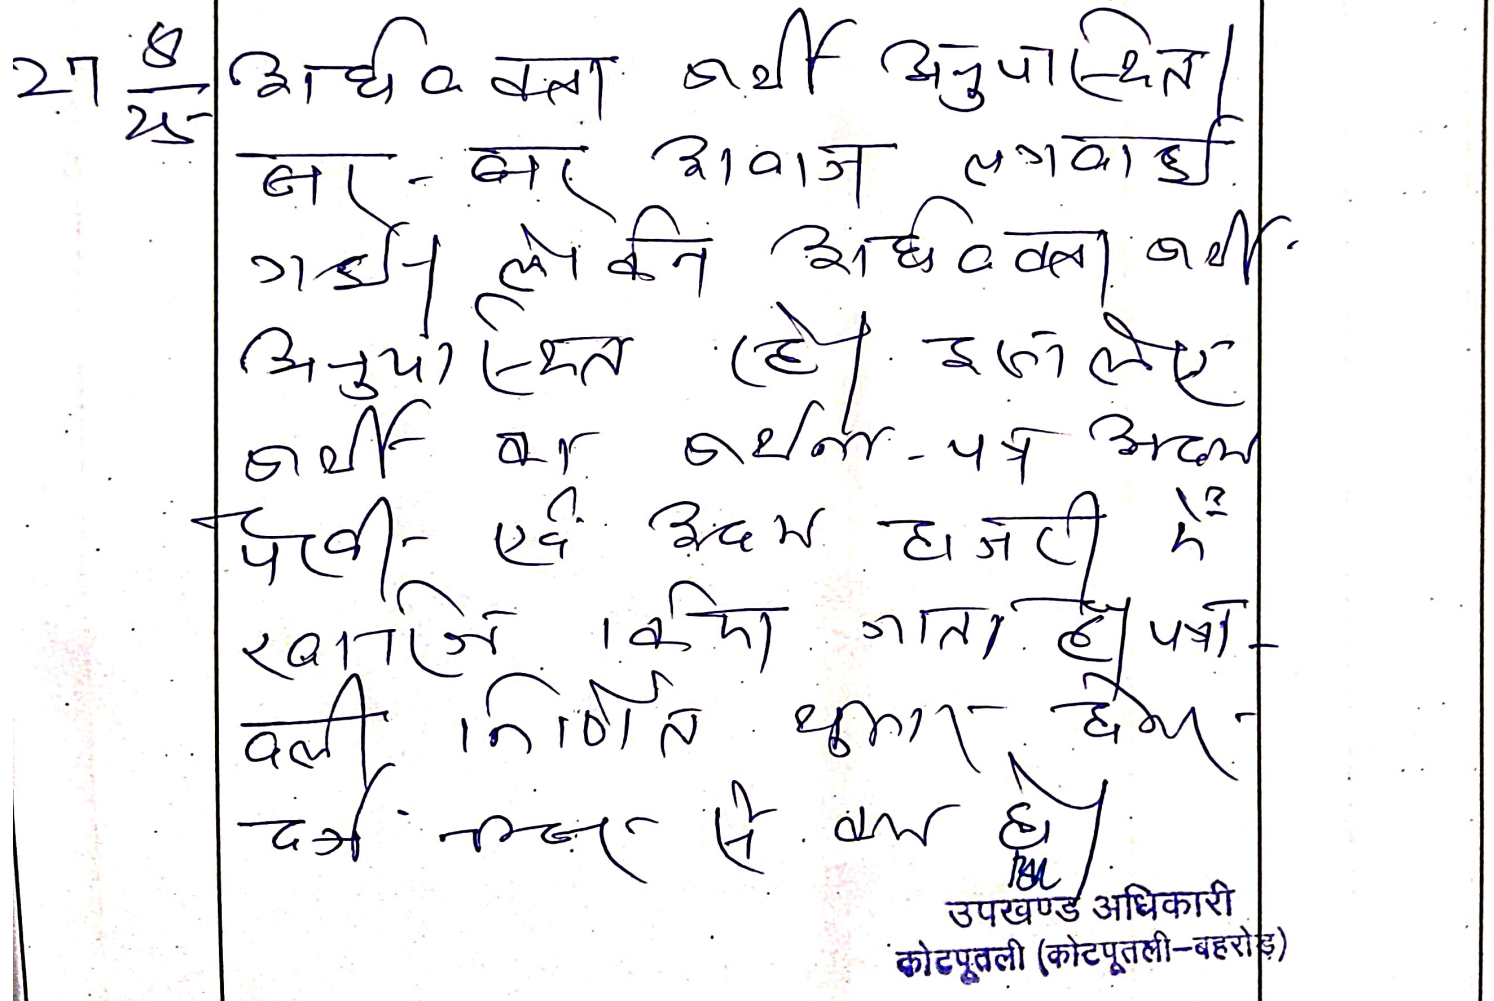 27 8/25 अधिवक्ता प्रार्थी अनुपस्थित।
बार-बार आवाज लगवाई
गई। लेकिन अधिवक्ता प्रार्थी
अनुपस्थित रहे। इसलिए
प्रार्थी का प्रार्थना-पत्र अदम
पैरवी एवं अदम हाजरी में
खारिज किया जाता है। पत्रा-
वली निर्णित शुमार होकर
दर्ज नम्बर से कम हो।
उपखण्ड अधिकारी
कोटपूतली (कोटपूतली-बहरोड़)